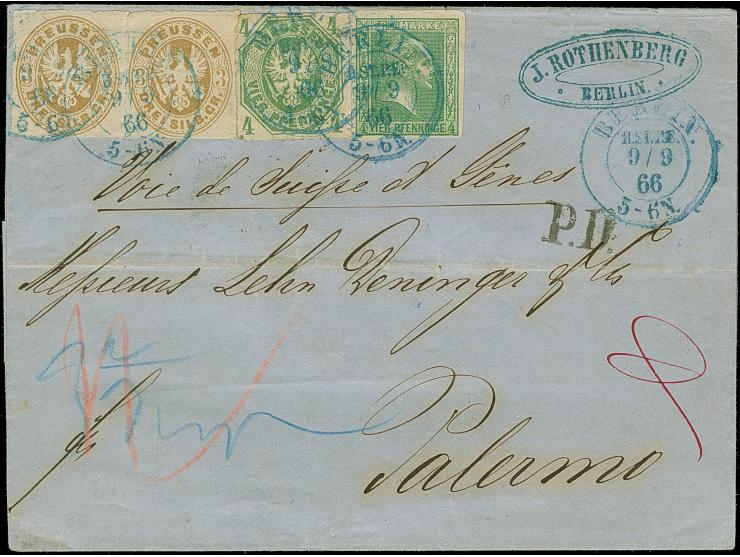 PREUSSEN
3
PREUSSEN
3
DREI SILB. GR.
4
PREUSSEN
4
VIER PFENNINGE
4
MARKE
VIER PFENNINGE
4
9/9
66
5-6N.
BERLIN
9/9
66
5-6N.
J. ROTHENBERG
BERLIN.
BERLIN.
9/9
66
5-6N.
Voie de Suisse et Gênes
P.D.
Messieurs Lehn Deninger & Co
Palermo